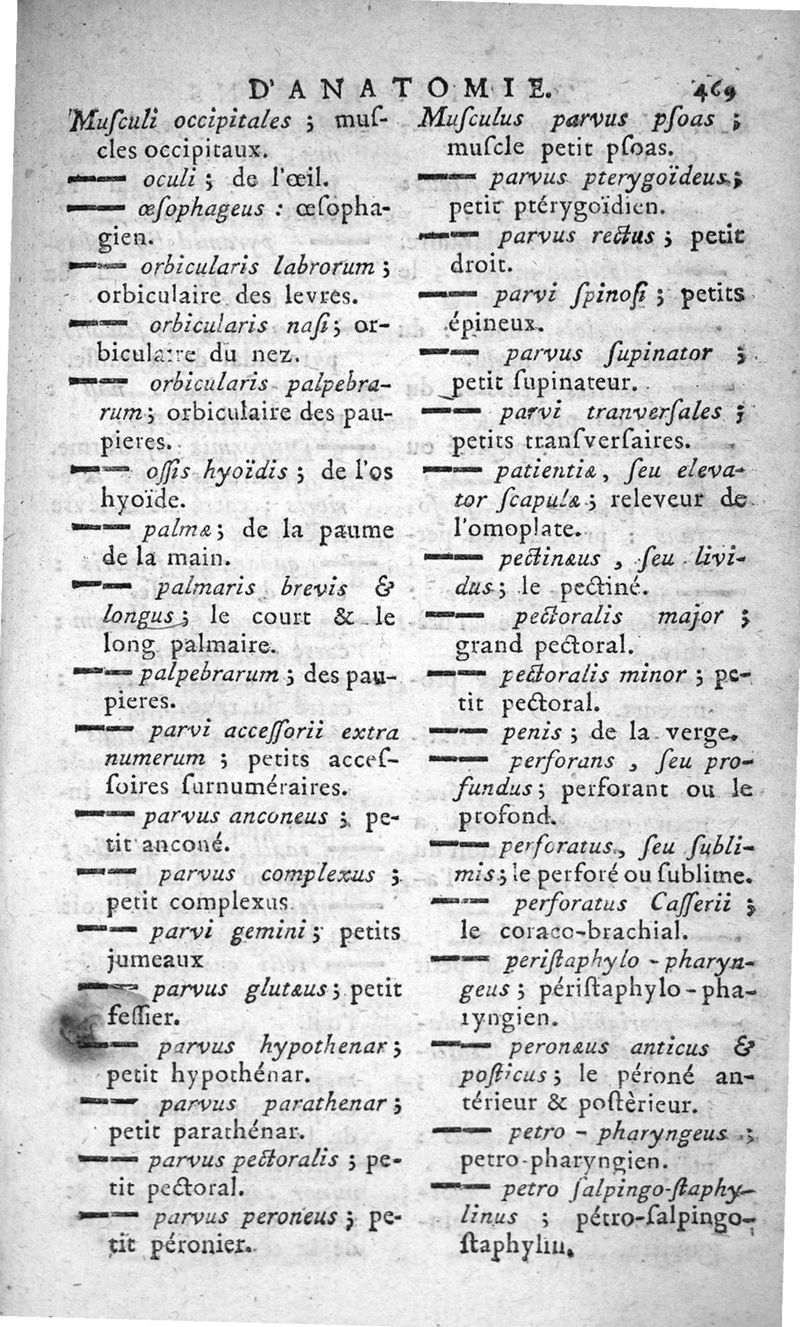 D'ANATOMIE. 469
Muſculi occipitales ; muſ-
cles occipitaux.
—— oculi ; de l'œil.
—— œſophageus : œſopha-
gien.
—— orbicularis labrorum ;
orbiculaire des levres.
—— orbicularis naſi ; or-
biculaire du nez.
—— orbicularis palpebra-
rum ; orbiculaire des pau-
pieres.
—— oſſis hyoïdis ; de l'os
hyoïde.
—— palmæ ; de la paume
de la main.
—— palmaris brevis &
longus ; le court & le
long palmaire.
—— palpebrarum ; des pau-
pieres.
—— parvi acceſſorii extra
numerum ; petits acceſ-
ſoires ſurnuméraires.
—— parvus anconeus ; pe-
tit anconé.
—— parvus complexus ;
petit complexus.
—— parvi gemini ; petits
jumeaux
—— parvus glutæus ; petit
feſſier.
—— parvus hypothenar ;
petit hypothénar.
—— parvus parathenar ;
petit parathénar.
—— parvus pectoralis ; pe-
tit pectoral.
—— parvus peroneus ; pe-
tit péronier.
Muſculus parvus pſoas ;
muſcle petit pſoas.
—— parvus pterygoïdeus ;
petit ptérygoïdien.
—— parvus rectus ; petit
droit.
—— parvi ſpinoſi ; petits
épineux.
—— parvus ſupinator ;
petit ſupinateur.
—— parvi tranverſales ;
petits tranſverſaires.
—— patientiæ, ſeu eleva-
tor ſcapulæ ; releveur de
l'omoplate.
—— pectinæus , ſeu livi-
dus ; le pectiné.
—— pectoralis major ;
grand pectoral.
—— pectoralis minor ; pe-
tit pectoral.
—— penis ; de la verge.
—— perforans , ſeu pro-
fundus ; perforant ou le
profond.
—— perforatus , ſeu ſubli-
mis ; le perforé ou ſublime.
—— perforatus Caſſerii ;
le coraco-brachial.
—— periſtaphylo-pharyn-
geus ; périſtaphylo-pha-
ryngien.
—— peronæus anticus &
poſticus ; le péroné an-
térieur & poſtèrieur.
—— petro-pharyngeus ;
petro-pharyngien.
—— petro ſalpingo-ſtaphy-
linus ; pétro-ſalpingo-
ſtaphylin.